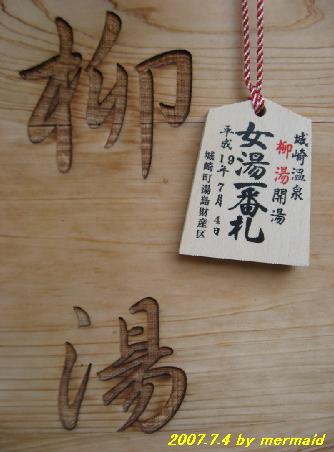 柳湯
城崎温泉
柳湯開湯
女湯一番札
平成19年7月4日
城崎町湯島財産区
2007.7.4 by mermaid